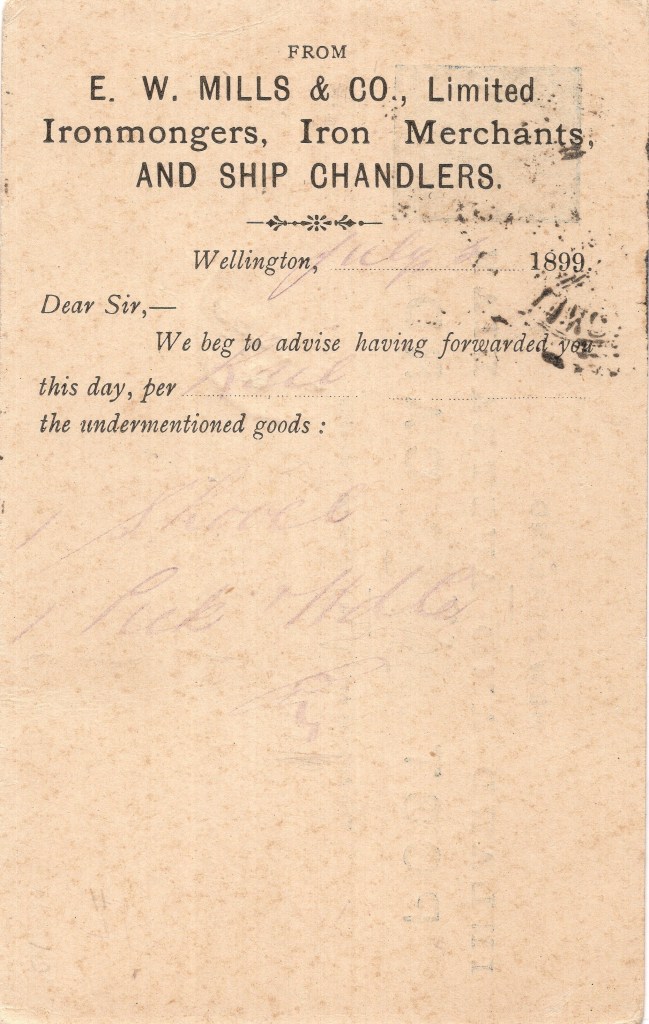 FROM
E. W. MILLS & CO., Limited
Ironmongers, Iron Merchants,
AND SHIP CHANDLERS.
Wellington, July 1899.
Dear Sir,—
We beg to advise having forwarded you
this day, per
the undermentioned goods :
1 Shovel
1 Pick & Hdle